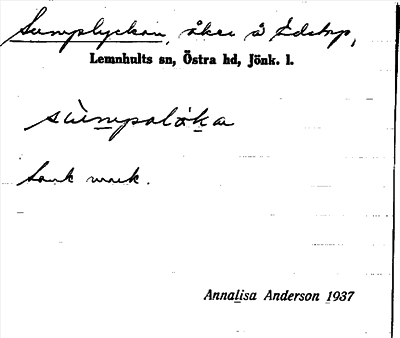 Sumplyckan, åker å Edstorp,
Lemnhults sn, Östra hd, Jönk. l.
sùmpaløka
Sank mark.
Annalisa Anderson 1937